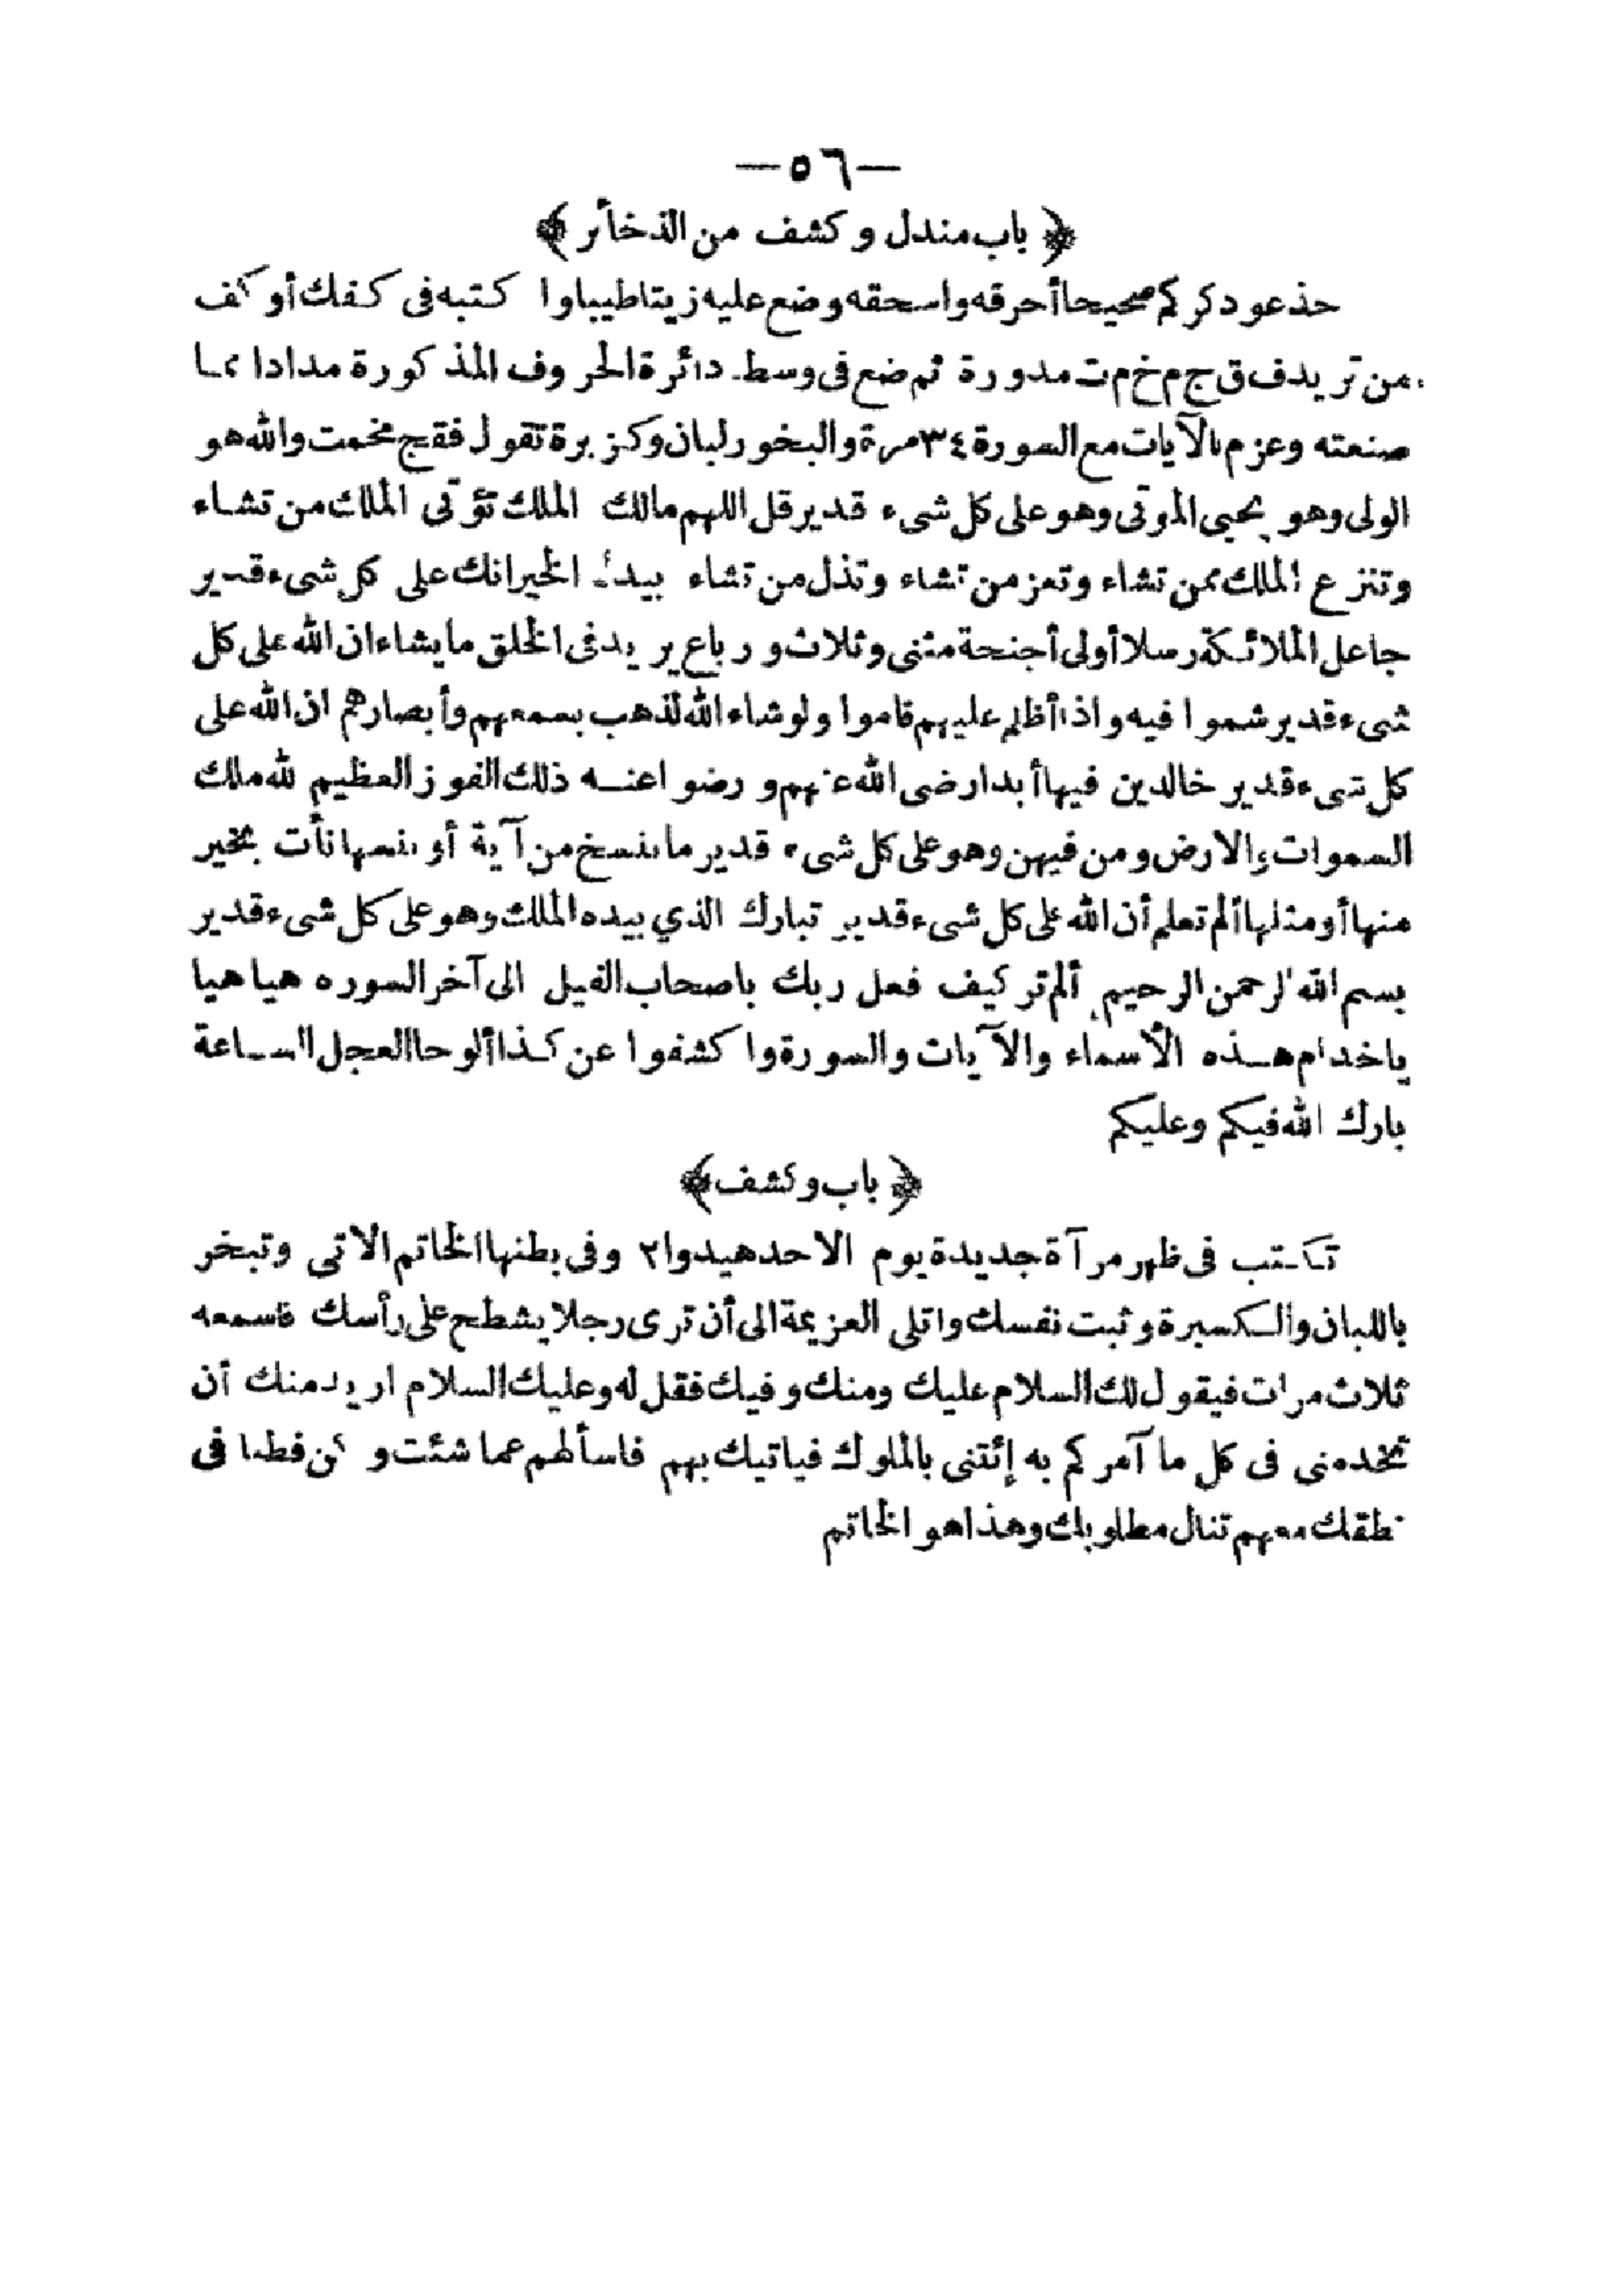 —٥٦—
﴿ باب مندل وكشف من الذخائر ﴾
حذ عود كركم صحيحا أحرقه واسحقه وضع عليه زيتا طيبا واكتبه فى كفك أو كف
من تريد ف ق ج م خ م ت مدورة ثم ضع فى وسط دائرة الحروف المذكورة مدادا مما
صنعته وعزم بالآيات مع السورة ٣٤ مرة والبخور لبان وكزبرة تقول فقج مخمت والله هو
الولى وهو يحيى الموتى وهو على كل شىء قدير قل اللهم مالك الملك تؤتى الملك من تشاء
وتنزع الملك ممن تشاء وتعز من تشاء وتذل من تشاء بيدك الخير انك على كل شىء قدير
جاعل الملائكة رسلا أولى أجنحة مثنى وثلاث ورباع يريد فى الخلق ما يشاء ان الله على كل
شىء قدير شموا فيه واذا أظلم عليهم قاموا ولو شاء الله لذهب بسمعهم وأبصارهم ان الله على
كل شىء قدير خالدين فيها أبدا رضى الله عنهم ورضوا عنه ذلك الفوز العظيم لله ملك
السموات والارض ومن فيهن وهو على كل شىء قدير ما ننسخ من آية أو ننسها نأت بخير
منها أو مثلها ألم تعلم أن الله على كل شىء قدير تبارك الذي بيده الملك وهو على كل شىء قدير
بسم الله الرحمن الرحيم ألم تر كيف فعل ربك باصحاب الفيل الى آخر السوره هيا هيا
ياخدام هذه الأسماء والآيات والسورة واكشفوا عن كذا ألوحا العجل الساعة
بارك الله فيكم وعليكم
﴿ باب وكشف ﴾
تكتب فى ظهر مرآة جديدة يوم الاحد هيدوا ٢ وفى بطنها الخاتم الاتى وتبخر
باللبان والكسبرة وثبت نفسك واتلى العزيمة الى أن ترى رجلا يشطح على رأسك فاسمعه
ثلاث مرات فيقول لك السلام عليك ومنك وفيك فقل له وعليك السلام اريد منك أن
تخدمنى فى كل ما آمركم به إئتنى بالملوك فياتيك بهم فاسألهم عما شئت وكن فطنا فى
نطقك معهم تنال مطلوبك وهذا هو الخاتم